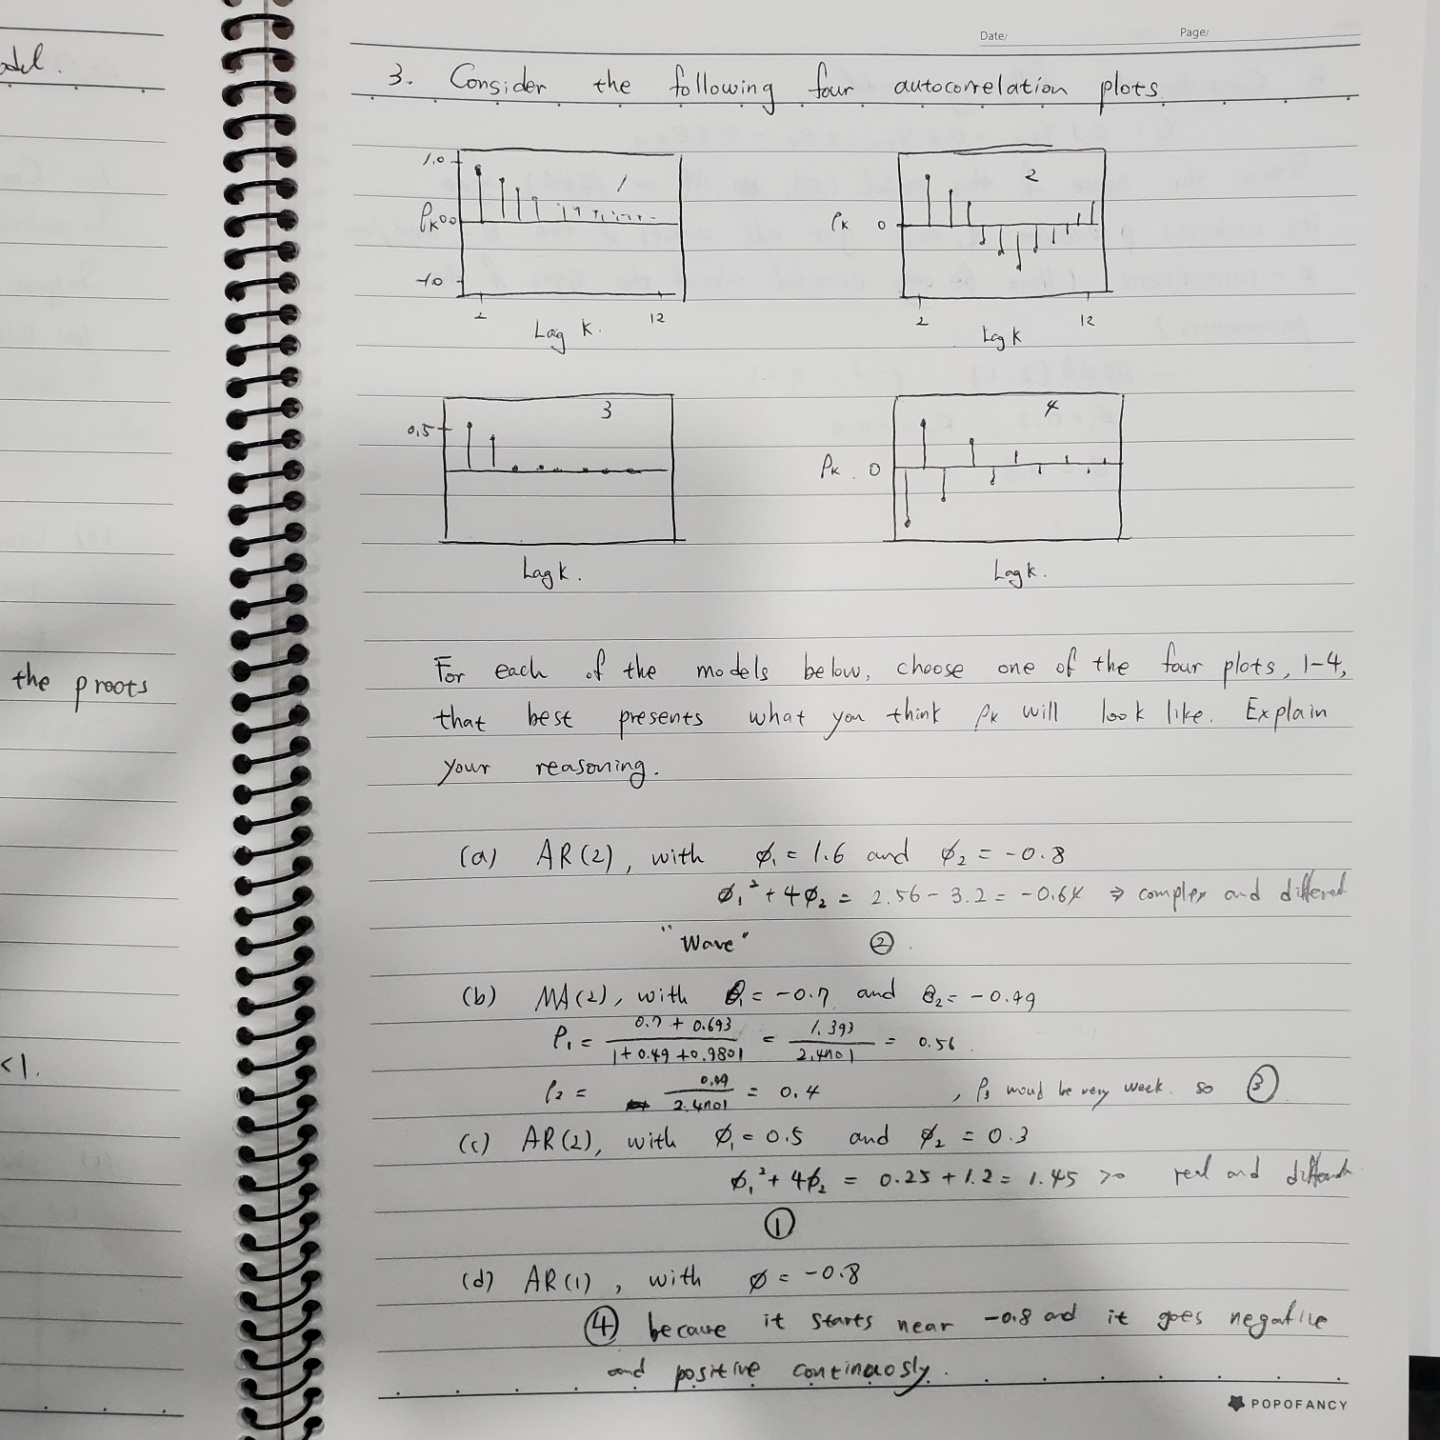 odel.
the proots
<1.
Date/ Page/
3. Consider the following four autocorrelation plots.
1.0
1
ρk 0.0
-1.0
2 12
Lag k.
2
ρk 0
2 12
Lag k
3
0.5
Lag k.
4
ρk. 0
Lag k.
For each of the models below, choose one of the four plots, 1-4,
that best presents what you think ρk will look like. Explain
your reasoning.
(a) AR(2), with ϕ₁ = 1.6 and ϕ₂ = -0.8
ϕ₁² + 4ϕ₂ = 2.56 - 3.2 = -0.64 ⇒ complex and different
"Wave" ②.
(b) MA(2), with θ₁ = -0.7 and θ₂ = -0.99
ρ₁ = (0.7 + 0.693)/(1 + 0.49 + 0.9801) = 1.393/2.4701 = 0.56
ρ₂ = 0.99/2.4701 = 0.4 , ρ₃ woud be very weak. so ③
(c) AR(2), with ϕ₁ = 0.5 and ϕ₂ = 0.3
ϕ₁² + 4ϕ₂ = 0.25 + 1.2 = 1.45 >0 real and different
①
(d) AR(1), with ϕ = -0.8
④ because it starts near -0.8 and it goes negative
and positive continuosly.
POPOFANCY